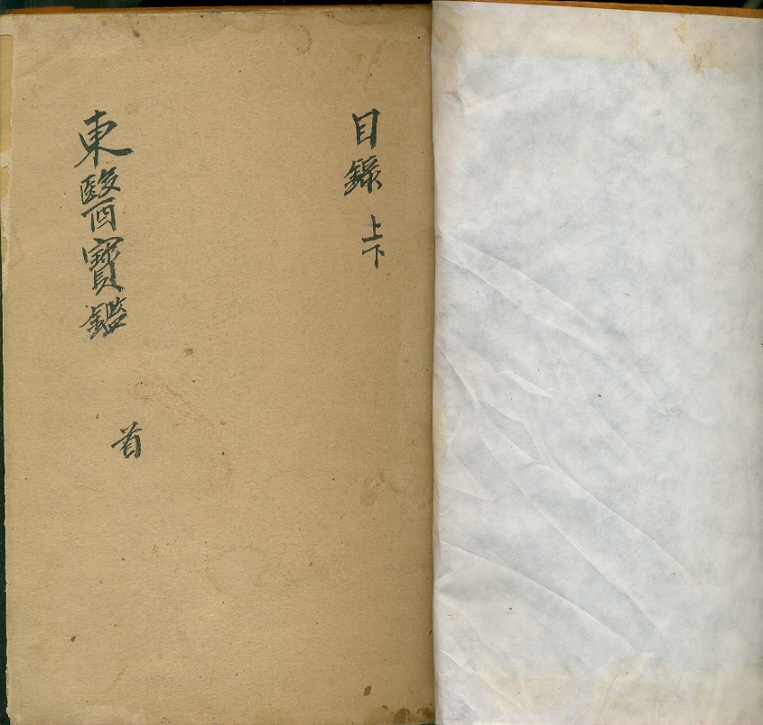 目錄 上下
東醫寶鑑 首